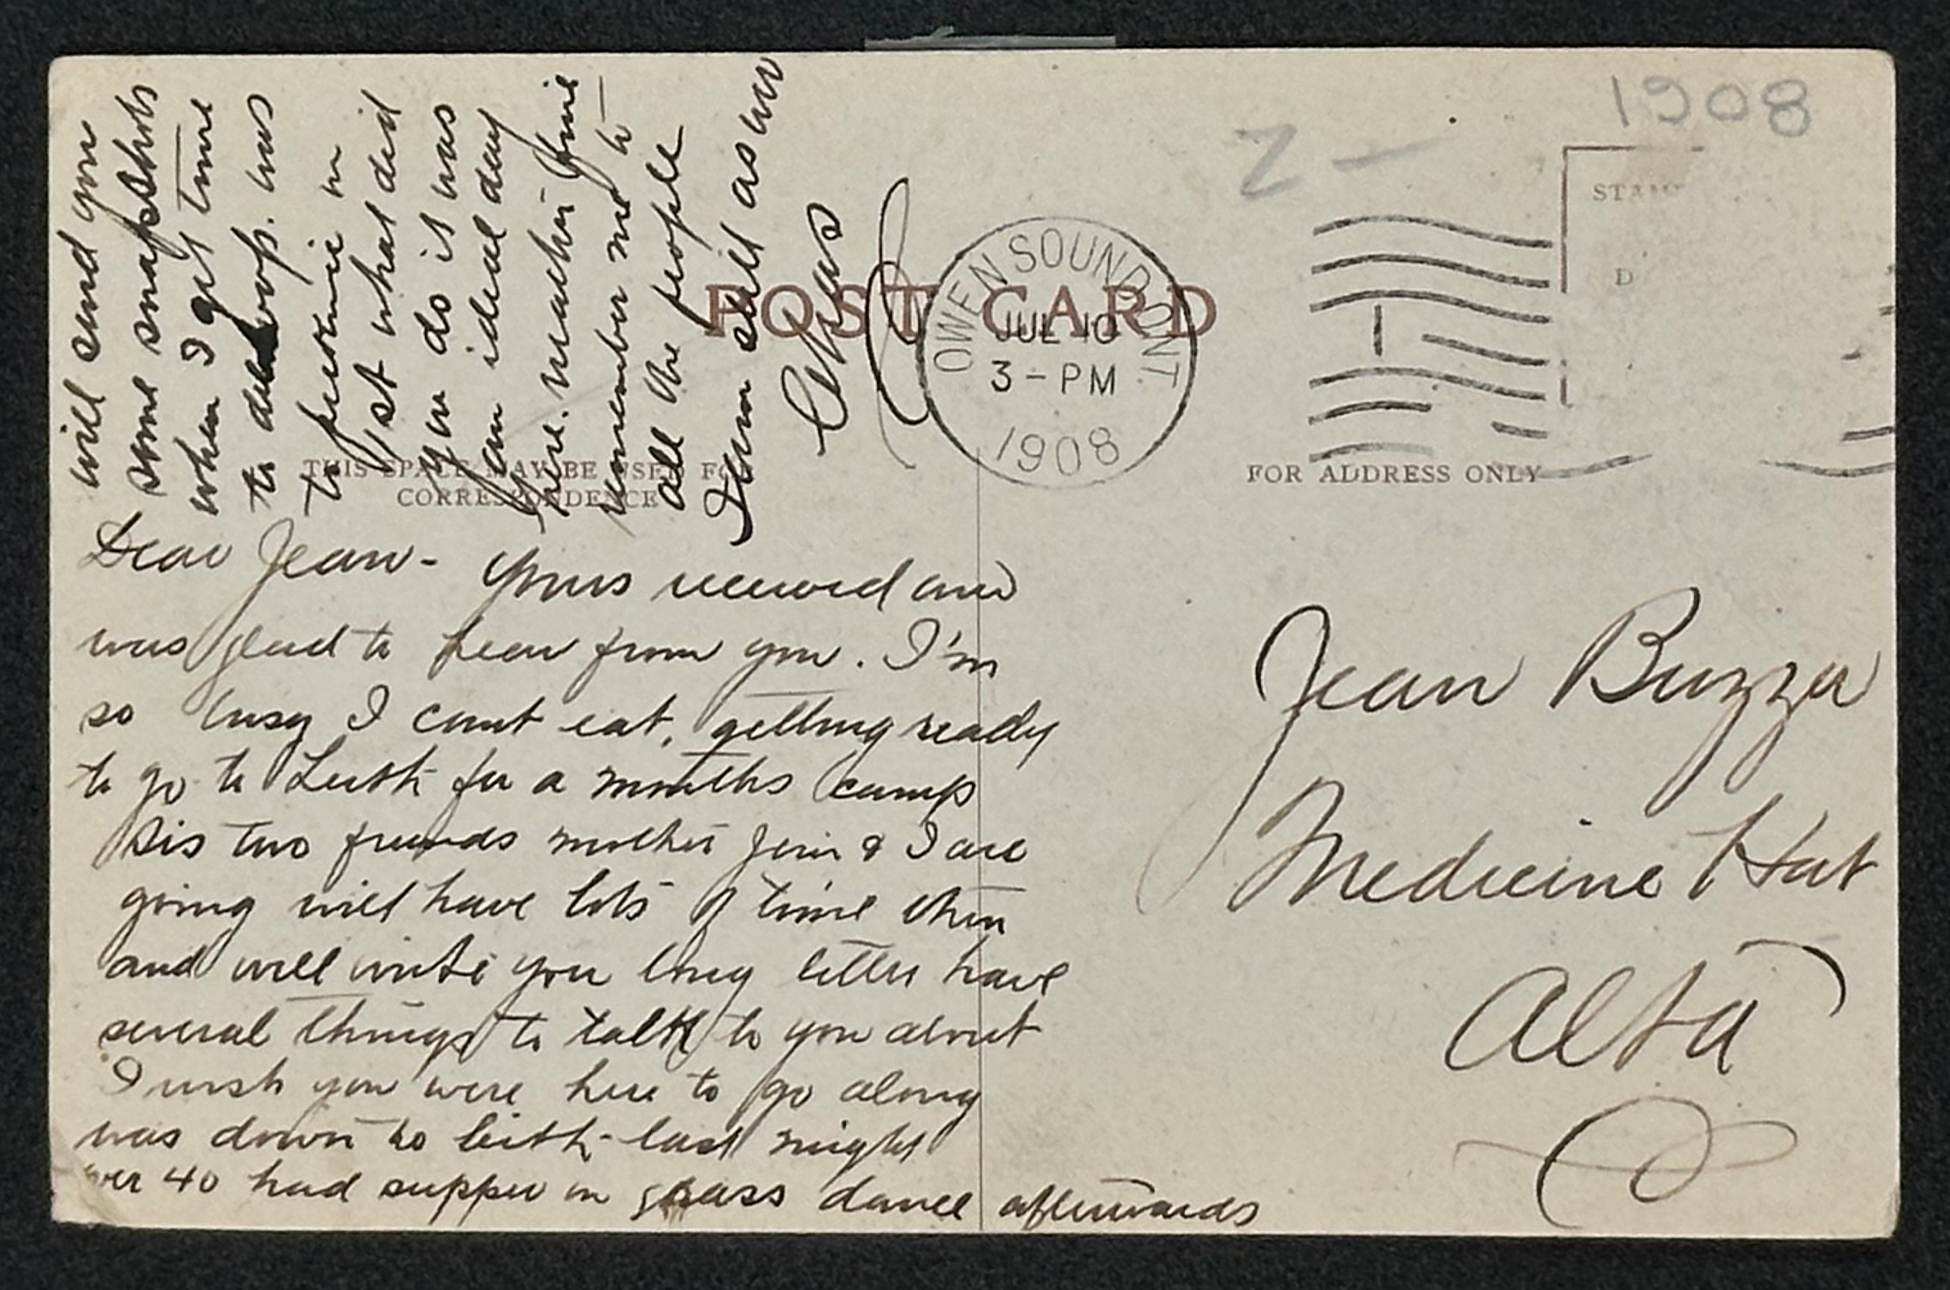 1908
Z —
STAMP
D
POST CARD
OWEN SOUND, ONT.
JUL 10
3 - PM
1908
THIS SPACE MAY BE USED FOR
CORRESPONDENCE
FOR ADDRESS ONLY
Dear Jean - Yours received and
was glad to hear from you. I'm
so busy I cant eat, getting ready
to go to Leith for a months camp
Sis two friends mother Jim & I are
going will have lots of time then
and will write you long letter have
several things to talk to you about
I wish you were here to go along
was down to Leith last night
over 40 had supper on grass dance afterwards
will send you
some snapshots
when I get time
to develoop. was
to picnic on
1st what did
you do it was
an ideal day
here. weather fine
remember me to
all the people
I am still as ever
Chas
Jean Buzza
Medicine Hat
Alta